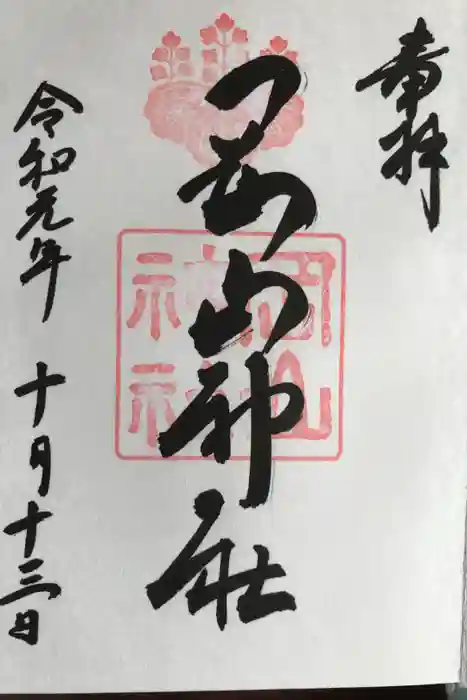 奉拝
岡山神社
岡山
神社
令和元年 十月十三日